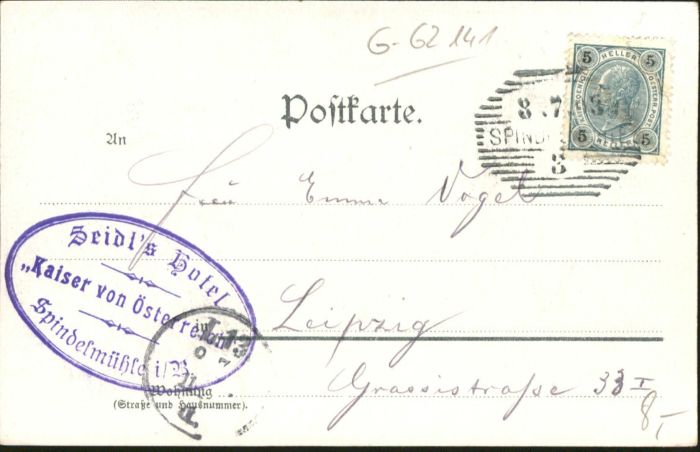 G-62141
5 HELLER 5
5 HELLER 5
Postkarte.
8 7
SPIND
8
An
Frau Emma Vogel
Seidl's Hotel
„Kaiser von Österreich“
Spindelmühle i/B.
in
Leipzig
Wohnung
(Straße und Hausnummer).
Grassistraße 33 I
8,-